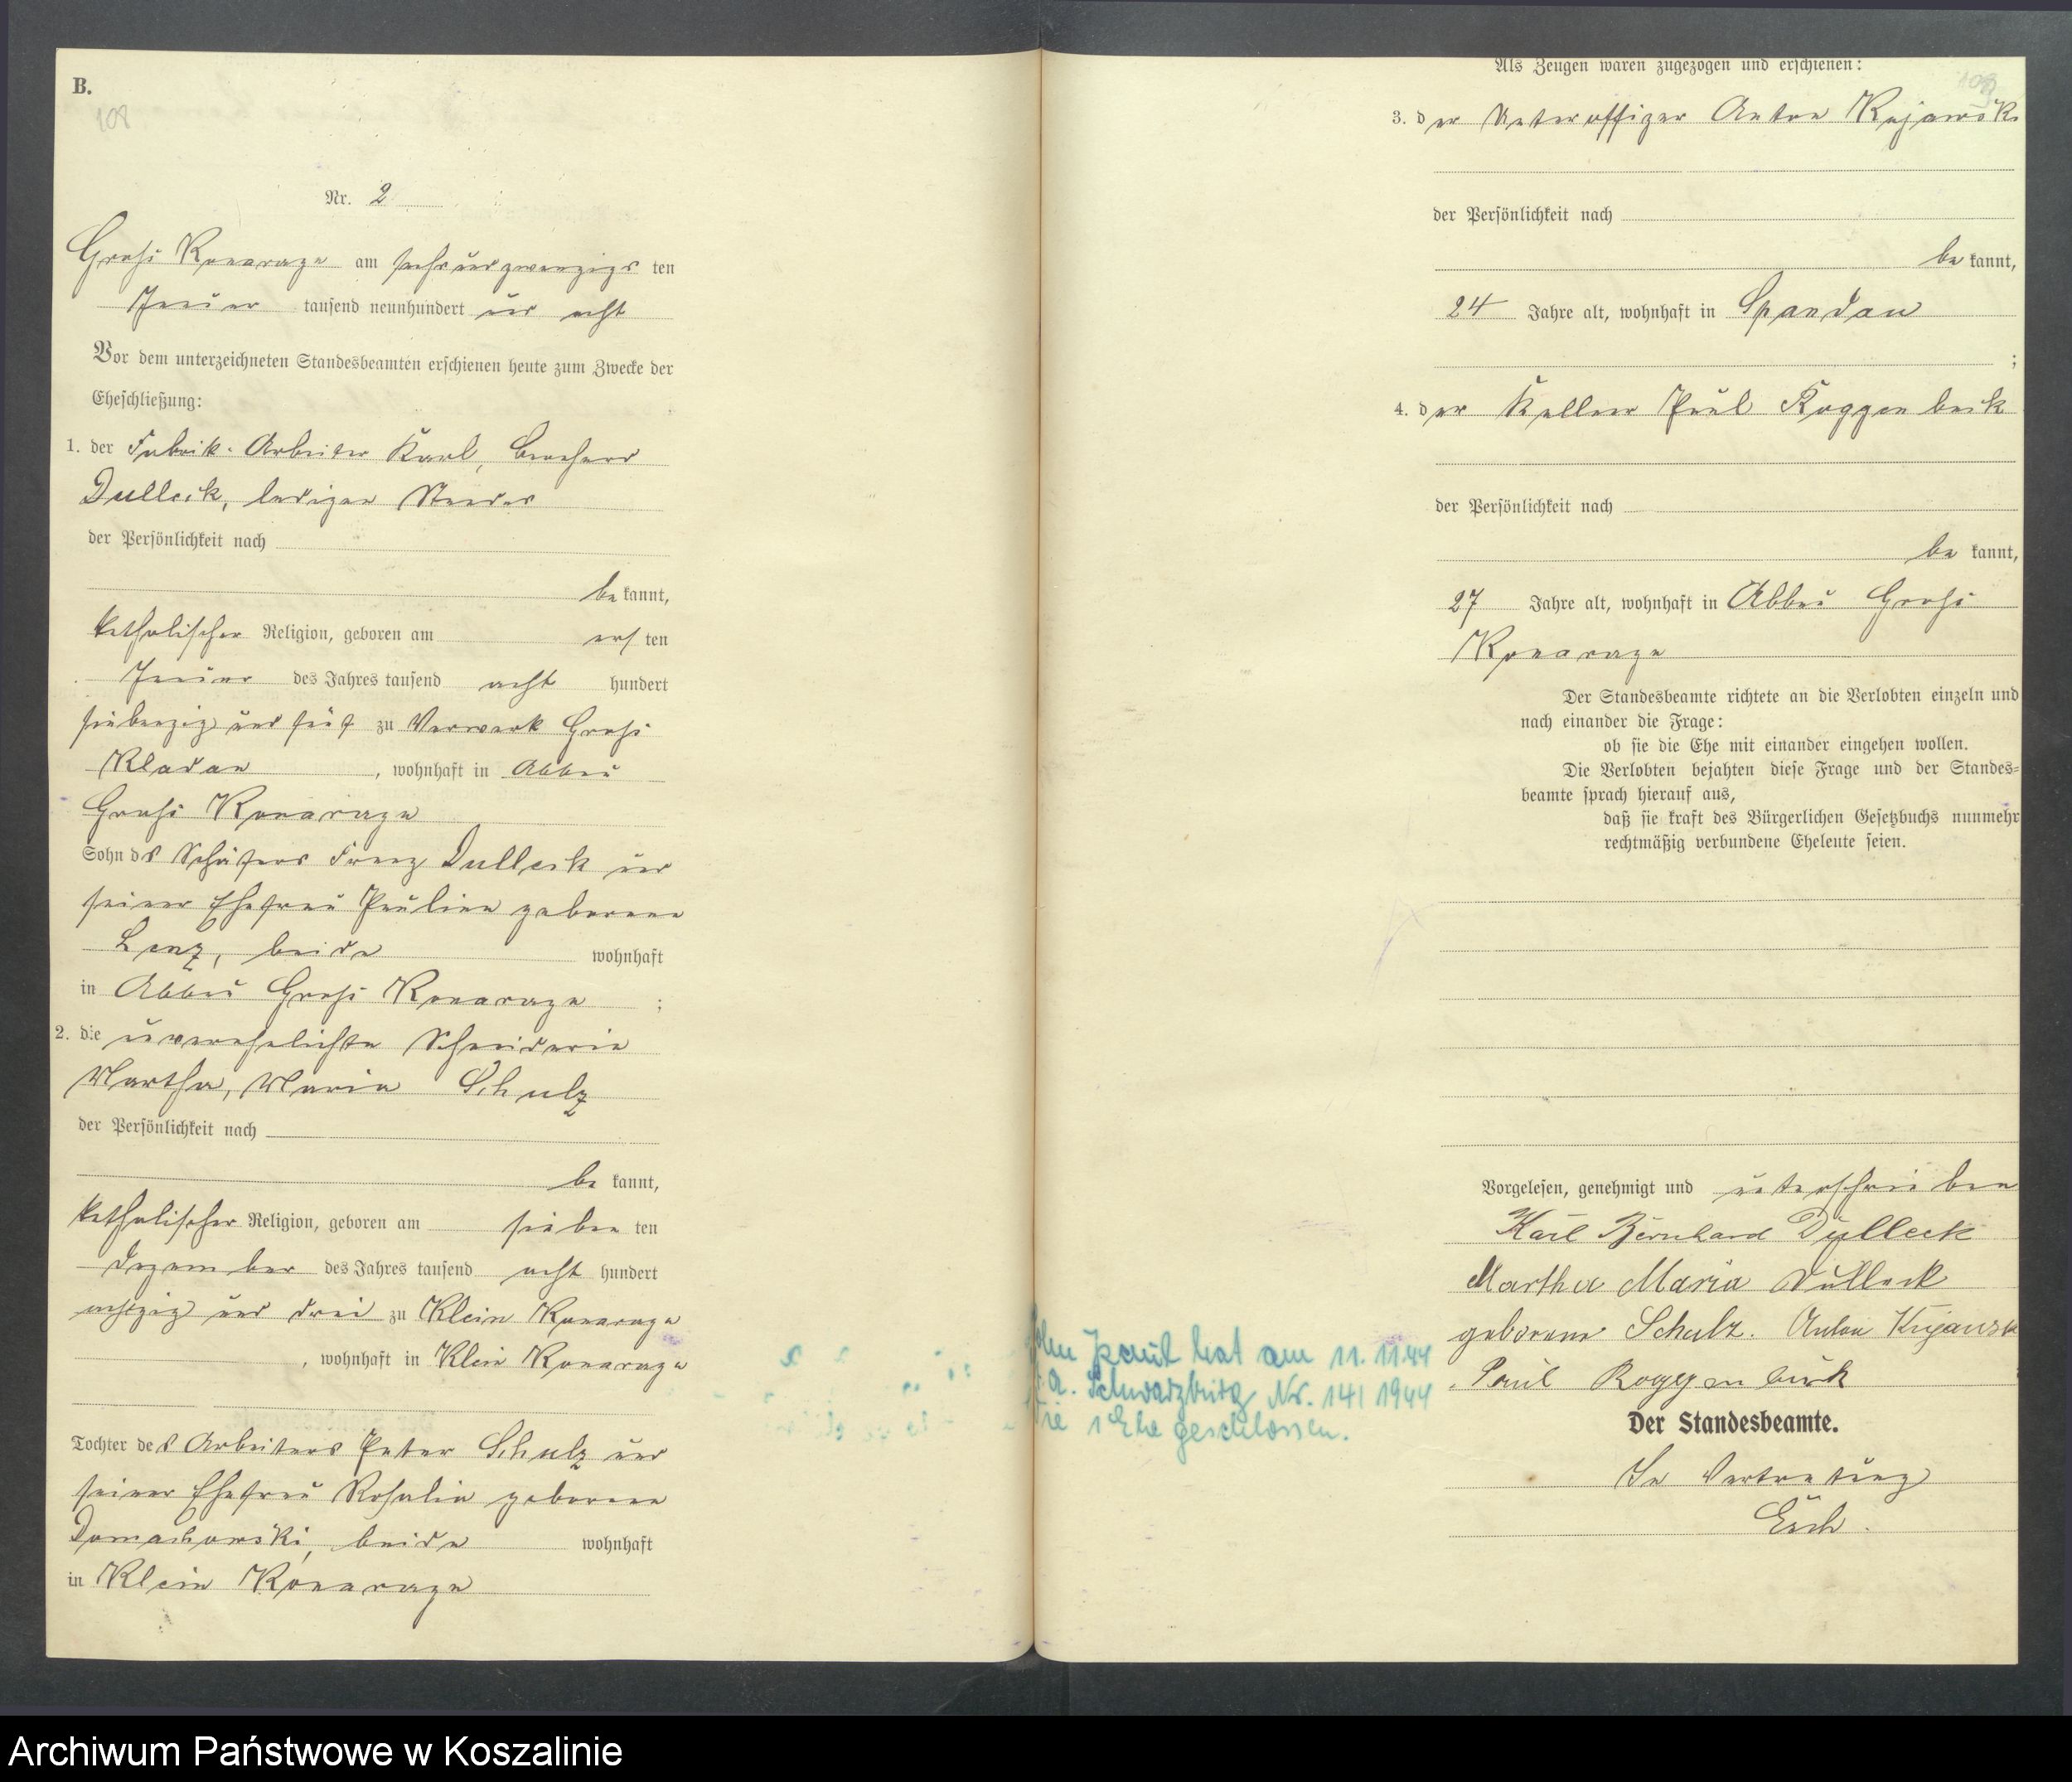 B.
108
Nr. 2
Groß Konarczyn am sechsundzwanzigsten
Januar tausend neunhundert und acht
Vor dem unterzeichneten Standesbeamten erschienen heute zum Zwecke der
Eheschließung:
1. der Fabrik-Arbeiter Karl, Bernhard
Dulleck, ledigen Standes
der Persönlichkeit nach
bekannt,
katholischer Religion, geboren am ersten
Januar des Jahres tausend acht hundert
siebenzig und fünf zu Vorwerk Groß
Kladau, wohnhaft in Abbau
Groß Konarczyn
Sohn des Schäfers Franz Dulleck und
seiner Ehefrau Pauline geborene
Lenz, beide wohnhaft
in Abbau Groß Konarczyn ;
2. die unverehelichte Schneiderin
Martha, Maria Schulz
der Persönlichkeit nach
be kannt,
katholischer Religion, geboren am sieben ten
Dezember des Jahres tausend acht hundert
achtzig und drei zu Klein Konarczyn
, wohnhaft in Klein Konarczyn
Tochter des Arbeiters Peter Schulz und
seiner Ehefrau Rosalie geborene
Domachowski, beide wohnhaft
in Klein Konarczyn
Als Zeugen waren zugezogen und erschienen:
3. der Unteroffizier Anton Kujawski
der Persönlichkeit nach
be kannt,
24 Jahre alt, wohnhaft in Spandau
;
4. der Kellner Paul Roggenbuck
der Persönlichkeit nach
be kannt,
27 Jahre alt, wohnhaft in Abbau Groß
Konarczyn
Der Standesbeamte richtete an die Verlobten einzeln und
nach einander die Frage:
ob sie die Ehe mit einander eingehen wollen.
Die Verlobten bejahten diese Frage und der Standes-
beamte sprach hierauf aus,
daß sie kraft des Bürgerlichen Gesetzbuchs nunmehr
rechtmäßig verbundene Eheleute seien.
Vorgelesen, genehmigt und unterschrieben
Karl Bernhard Dulleck
Martha Maria Dulleck
geborene Schulz. Anton Kujawski
Paul Roggenbuck
Der Standesbeamte.
In Vertretung
Esch.
Sohn Paul hat am 11.11.44
St. A. Schwarzburg Nr. 14/1944
die 1 Ehe geschlossen.
Archiwum Państwowe w Koszalinie